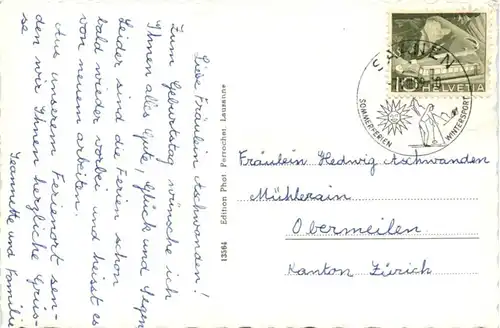 Liebe Fräulein Aschwanden!
Zum Geburtstag wünsche ich
Ihnen alles Gute! Glück und Segen,
Leider sind die Ferien schon
bald wieder vorbei und heisst es
von neuem arbeiten.
Aus unserem Ferienort sen-
den wir Ihnen herzliche Grüs-
se
Jeannette und Familie
13564 Edition Phot. Perrochet, Lausanne
10 HELVETIA
SOMMERFERIEN
WINTERSPORT
Fräulein Hedwig Aschwanden
Mühlerain
Obermeilen
Kanton Zürich